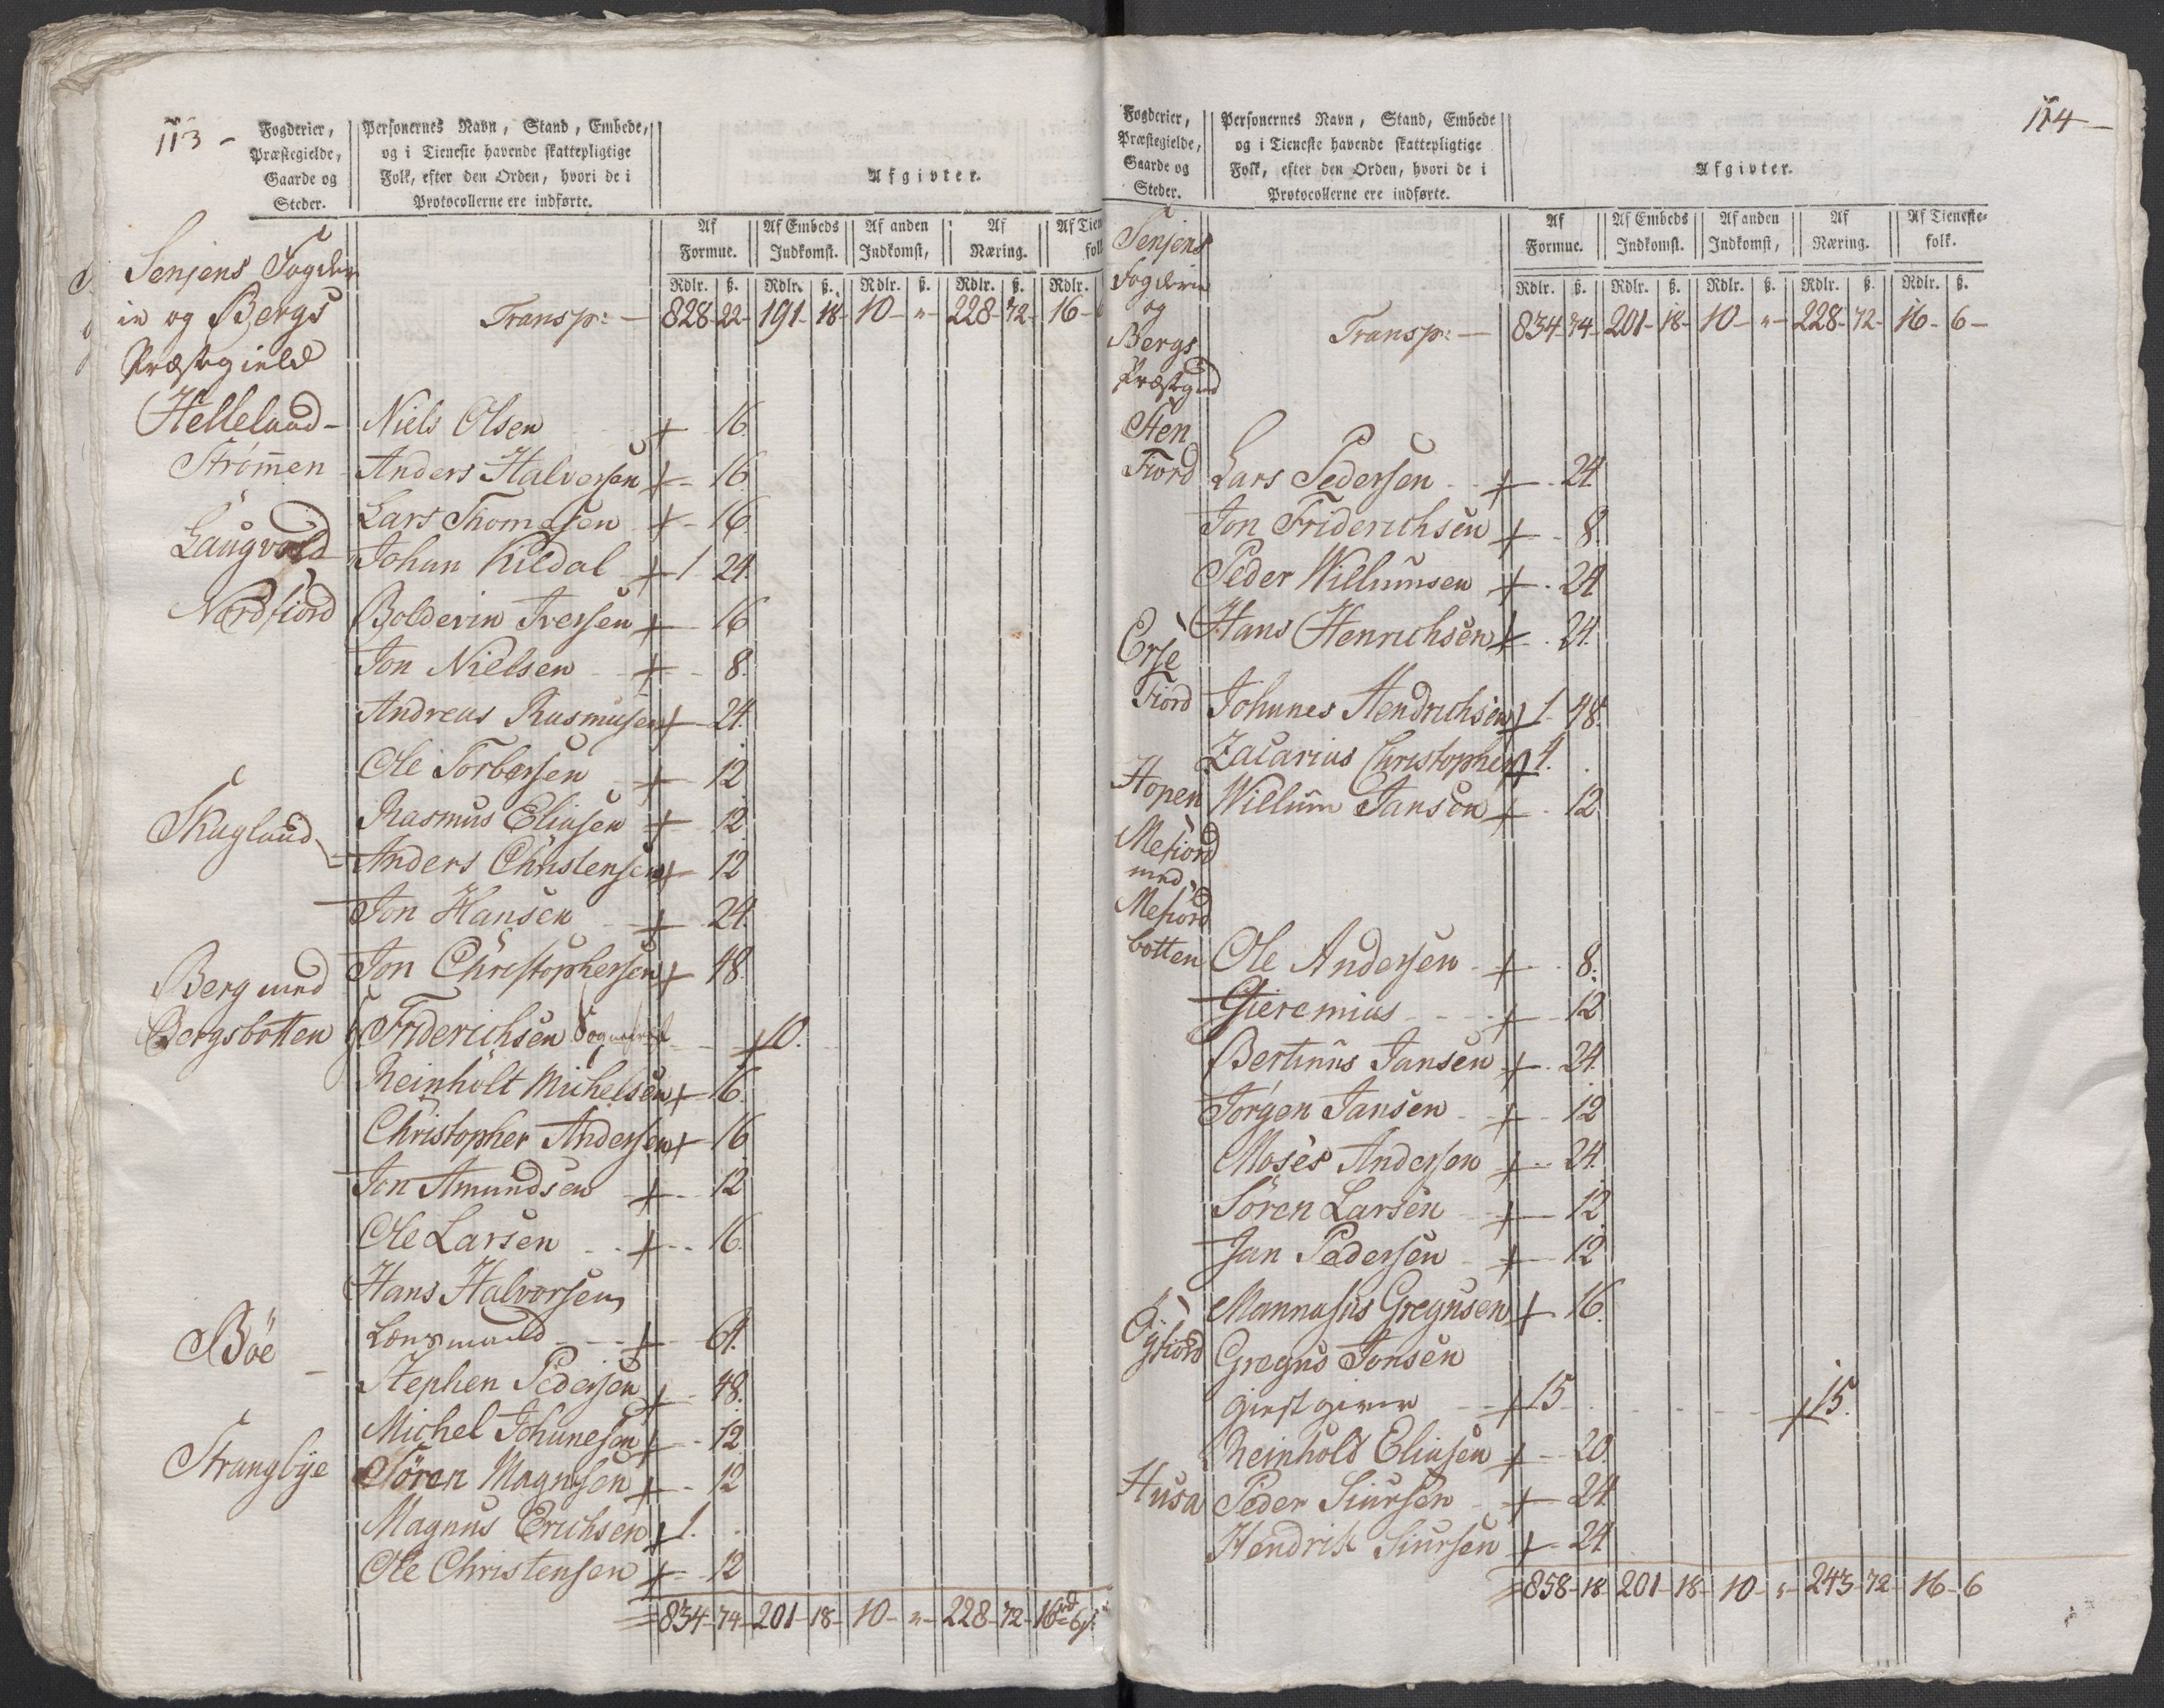 113 -
Fogderier,
Præstegielde,
Gaarde og
Steder.
Personernes Navn, Stand, Embede,
og i Tieneste havende skattepligtige
Folk, efter den Orden, hvori de i
Protocollerne ere indførte.
Afgivter.
Af Formue. Af Embeds Indkomst. Af anden Indkomst, Af Næring. Af Tien
Rdlr. ß. Rdlr. ß. Rdlr. ß. Rdlr. ß. Rdlr.
Senjens Fogder
ie og Bergs
Præstegield
Transp: — 828 - 22 - 191 - 18 - 10 - " - 228 - 72 - 16 -
Helleland - Niels Olsen + 16.
Strømen - Anders Halversen + 16
Lars Thomasen + 16
Laugvold Johan Kildal + 1 24.
Nordfiord Bolderin Iversen + 16
Jon Nielsen + 8.
Andreas Rasmusen + 24.
Ole Torbersen + 12
Rasmus Eliasen + 12
Skagland = Anders Christensen + 12
Jon Hansen + 24.
Jon Christophersen + 48.
Berg med
Bergsbotten Friderichsen Sognepræst + 10.
Reinholt Michelsen + 16.
Christopher Andersen + 16
Jon Amundsen + 12
Ole Larsen + 16.
Hans Halvorsen
Bøe - Lensmand + 64.
Stephen Pedersen + 48.
Michel Johanesen + 12
Strangbye Søren Magnusen + 12
Magnus Erichsen + 1.
Ole Christensen + 12
= 834 - 74 - 201 - 18 - 10 - " - 228 - 72 - 16 rd 6 ß
114 —
Fogderier,
Præstegielde,
Gaarde og
Steder.
Personernes Navn, Stand, Embede
og i Tieneste havende skattepligtige
Folk, efter den Orden, hvori de i
Protocollerne ere indførte.
Afgivter.
Af Formue. Af Embeds Indkomst. Af anden Indkomst, Af Næring. Af Tieneste-folk.
Rdlr. ß. Rdlr. ß. Rdlr. ß. Rdlr. ß. Rdlr. ß.
Senjens
Fogderie
og
Transp: — 834 - 74 - 201 - 18 - 10 - " - 228 - 72 - 16 - 6 -
Bergs
Præstegield
Sten
Fiord Lars Pedersen + 24.
Jon Friderichsen + 8.
Peder Willumsen + 24
Hans Henrichsen + 24.
Erse
Fiord Johanes Hendrichsen + 1 48.
Zacarias Christophersen + 4.
Hopen Willum Jansen + 12
Mefiord
med
Mefiord
botten Ole Andersen + 8.
Gieremias + 12
Bertinus Jansen + 24.
Jørgen Jansen + 12
Moses Andersen + 24.
Søren Larsen + 12
Jan Pedersen + 12
Mannasius Gregusen + 16.
Ø
yfiord Gregus Jonsen
Giestgiver + 15 + 15.
Reinhold Eliasen + 20.
Husa Peder Siursen + 24
Hendrik Siursen + 24
= 858 - 18 201 - 18 - 10 - " - 243 - 72 - 16 - 6